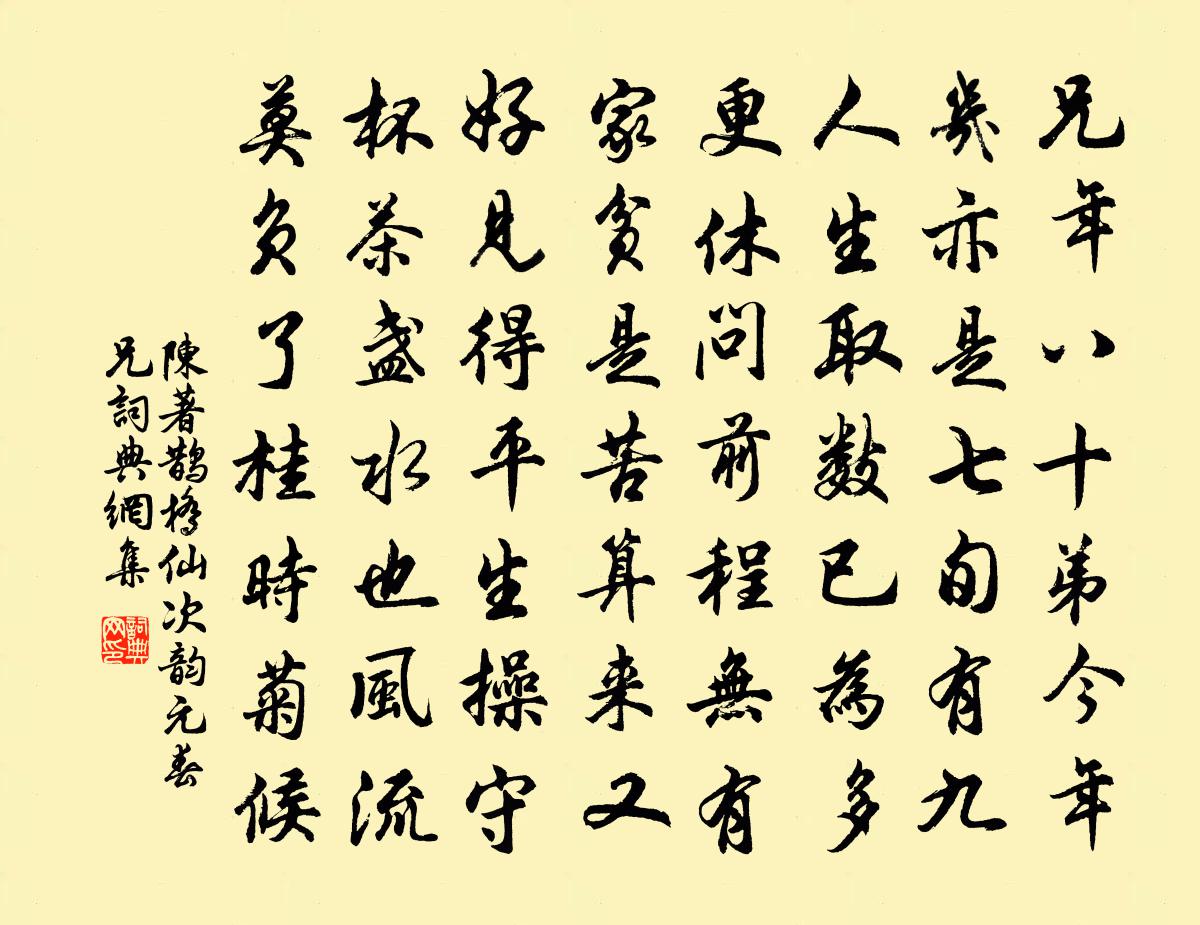 兄年八十弟今年
幾亦是七旬有九
人生取数已為多
更休問前程無有
家貧是苦算来又
好見得平生操守
杯茶盞水也風流
莫負了桂時菊候
陳著鵲橋仙次韵元春
兄詞典網集
詞典网印